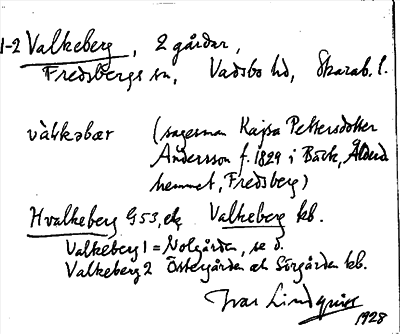 1-2 Valkeberg, 2 gårdar,
Fredsbergs sn, Vadsbo hd, Skarab. l.
vàlkəbær (sagesman Kajsa Pettersdotter
Andersson f. 1829 i Bäck, Ålderd
hemmet, Fredsberg)
Hvalkeberg G53, ek Valkeberg kb.
Valkeberg 1 = Nolgården, se d.
Valkeberg 2 Östergården och Sörgården kb.
Ivar Lindquist
1928